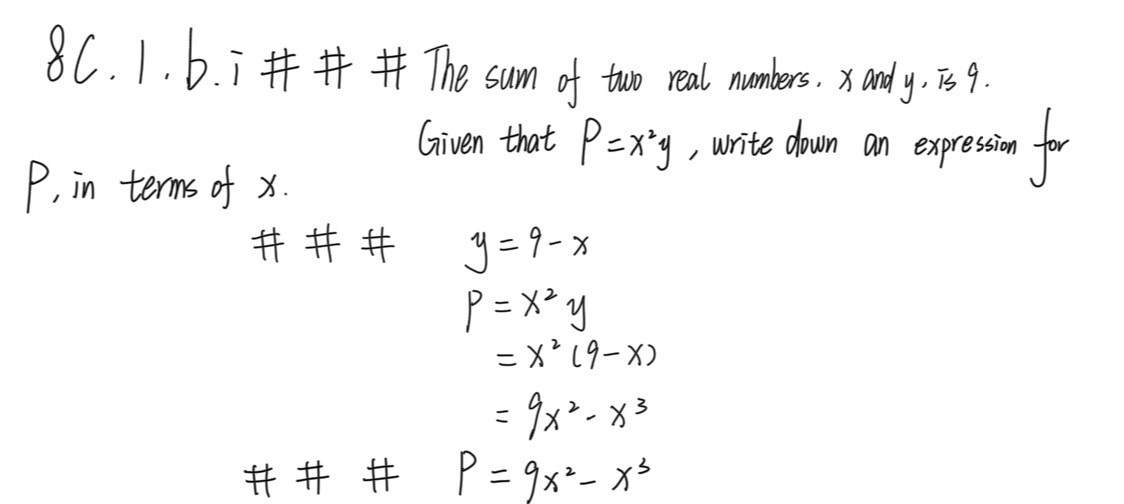 8C.1.b.i # # # The sum of two real numbers, x and y, is 9.
Given that P=x²y, write down an expression for
P, in terms of x.
# # # y=9-x
P=x²y
=x²(9-x)
=9x²-x³
# # # P=9x²-x³